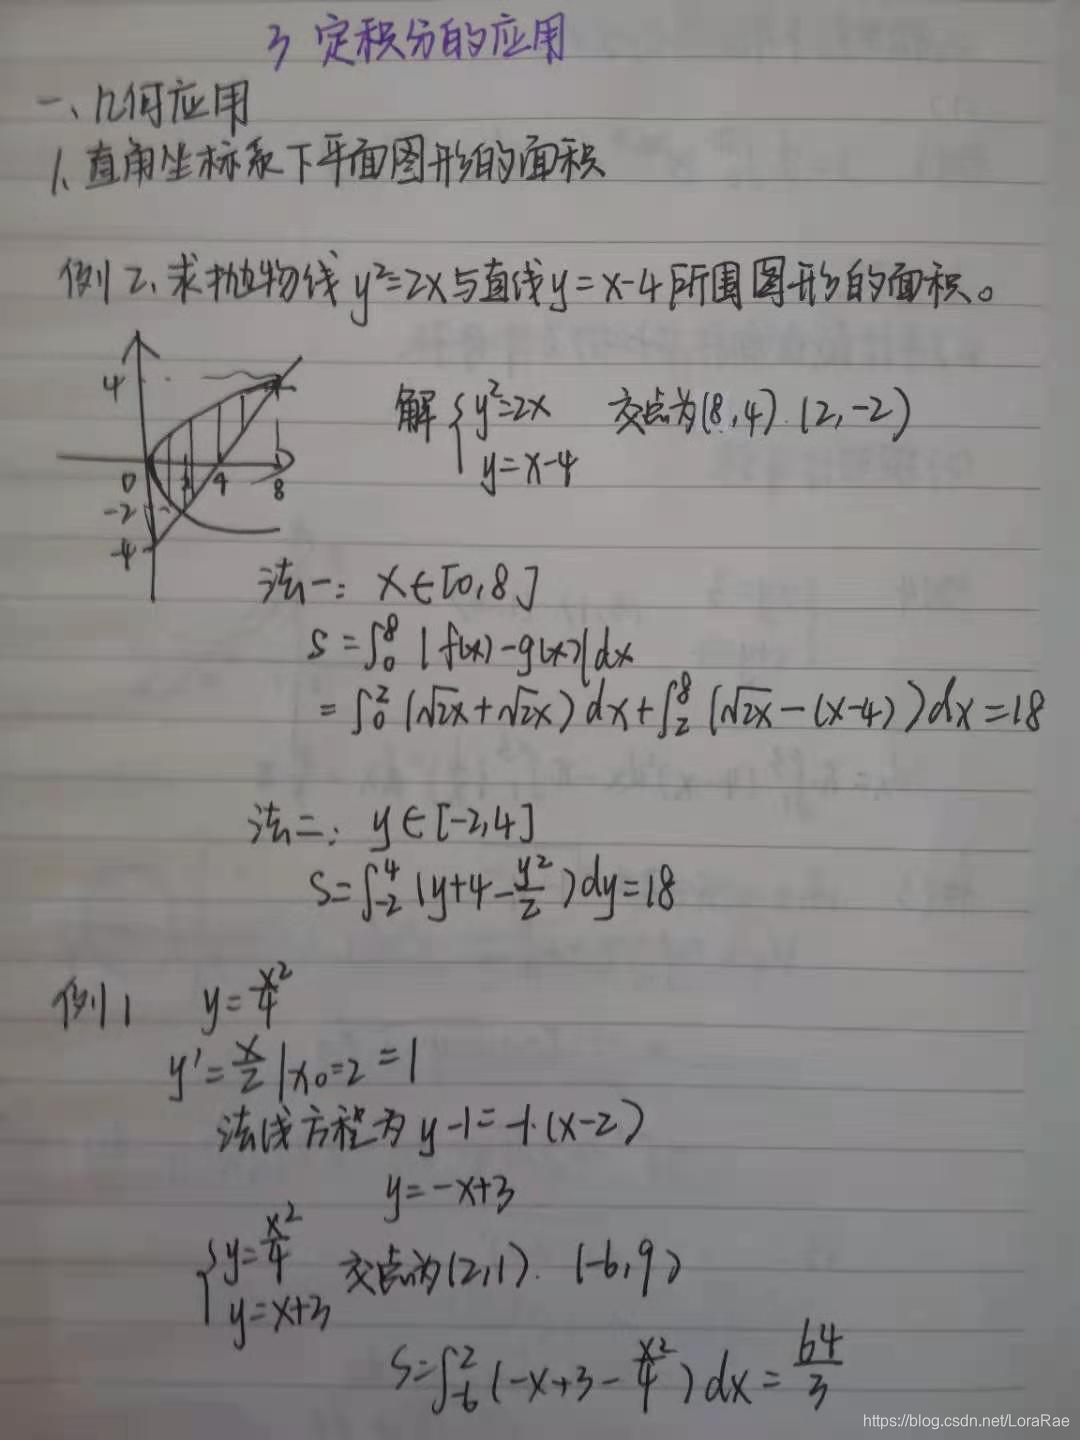 3 定积分的应用
一、几何应用
1、直角坐标系下平面图形的面积
例2、求抛物线y²=2x与直线y=x-4所围图形的面积。
4
0 2 4 8
-2
-4
解 { y²=2x 交点为(8,4).(2,-2)
y=x-4
法一: x∈[0,8]
S=∫₀⁸|f(x)-g(x)|dx
=∫₀²(√2x+√2x)dx+∫₂⁸(√2x-(x-4))dx=18
法二: y∈[-2,4]
S=∫₋₂⁴(y+4-y²/2)dy=18
例1 y=x²/4
y'=x/2|x₀=2=1
法线方程为y-1=-1·(x-2)
y=-x+3
{ y=x²/4 交点为(2,1).(-6,9)
y=x+3
S=∫₋₆²(-x+3-x²/4)dx=64/3
https://blog.csdn.net/LoraRae